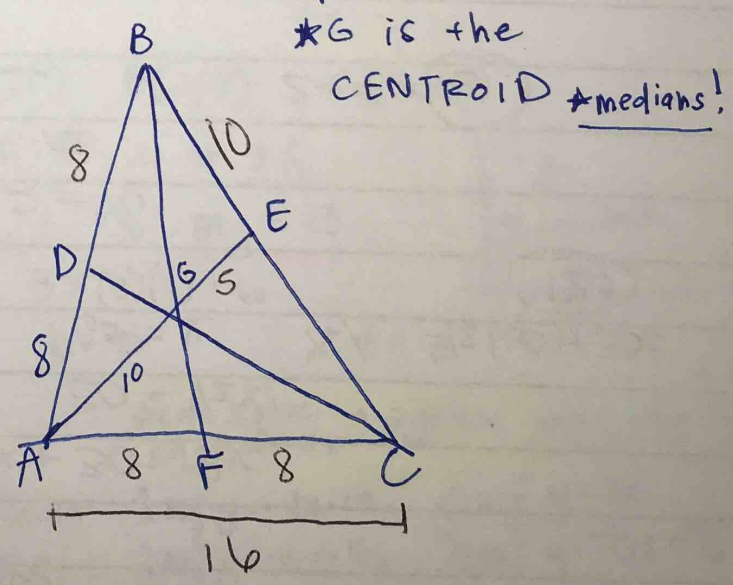 B
*G is the
CENTROID *medians!
8
10
E
D
G
5
8
10
A
8
F
8
C
16